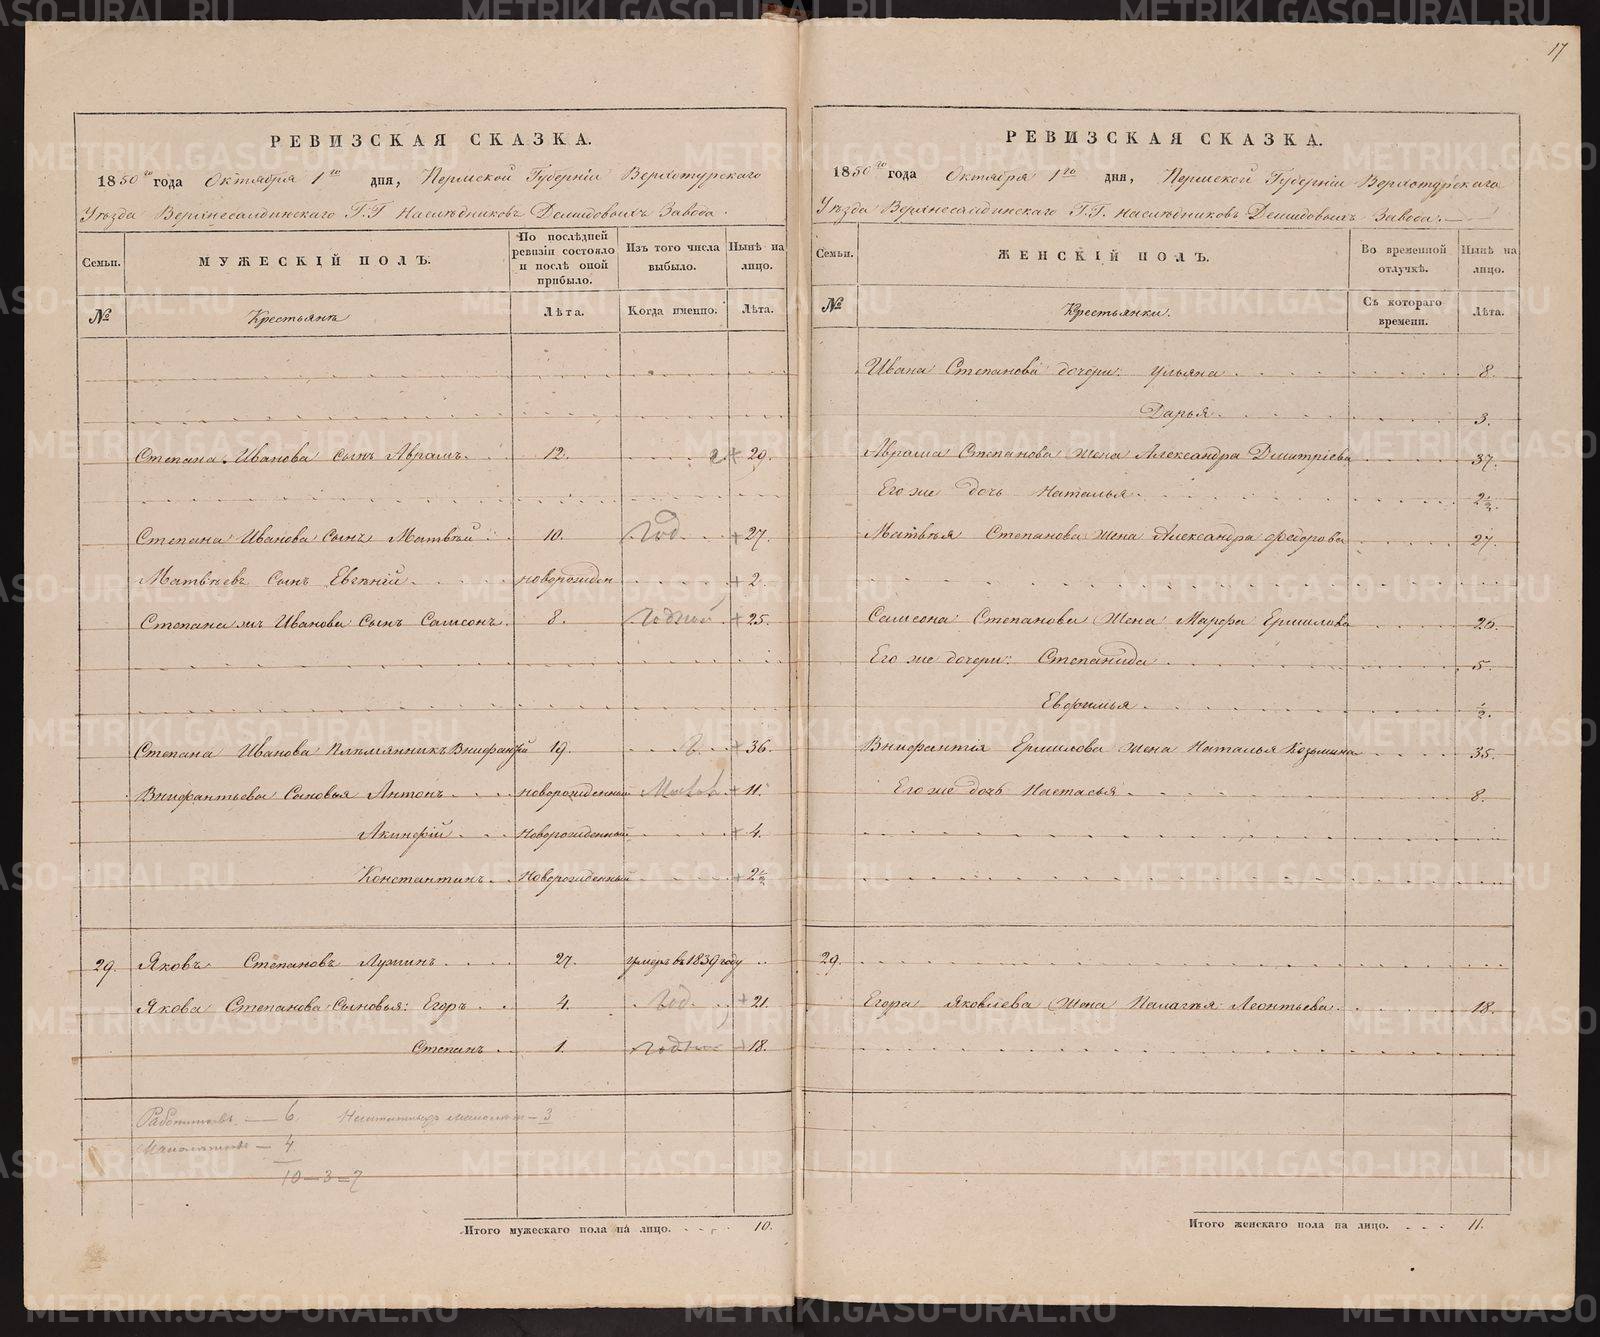 17
РЕВИЗСКАЯ СКАЗКА.
1850го года Октября 1го дня, Пермской Губерніи Верхотурскаго
Уѣзда Верхнесалдинскаго Г.Г. Наслѣдниковъ Демидовыхъ Завода.
Семьи. МУЖЕСКІЙ ПОЛЪ. По послѣдней ревизіи состояло и послѣ оной прибыло. Изъ того числа выбыло. Нынѣ на лицо.
№ Крестьянъ Лѣта. Когда именно. Лѣта.
Степана Иванова сынъ Абрамъ. 12. + 29.
Степана Иванова сынъ Матвѣй 10. Год + 27.
Матвѣевъ сынъ Евгеній новорожден + 2.
Степана жъ Иванова сынъ Самсонъ. 8. Годный + 25.
Степана Иванова племянникъ Внифантій 19. + 36.
Внифантьева Сыновья Антонъ новорожденный + 11.
Акинфій Новорожденный + 4.
Константинъ Новорожденный + 2½
29. Яковъ Степановъ Лумпинъ 27. умеръ въ 1839 году
Якова Степанова Сыновья: Егоръ 4. Год + 21.
Степанъ 1. + 18.
Работниковъ — 6. — 3
— 4
10 — 3 — 7
Итого мужескаго пола на лицо. 10.
РЕВИЗСКАЯ СКАЗКА.
1850го года Октября 1го дня, Пермской Губерніи Верхотурскаго
Уѣзда Верхнесалдинскаго Г.Г. Наслѣдниковъ Демидовыхъ Завода.
Семьи. ЖЕНСКІЙ ПОЛЪ. Во временной отлучкѣ. Нынѣ на лицо.
№ Крестьянки. Съ котораго времени. Лѣта.
Ивана Степанова дочери: Ульяна 8.
Дарья 3.
Абрама Степанова жена Александра Дмитріева 37.
Его же дочь Наталья 2½.
Матвѣя Степанова жена Александра Федорова 27.
Самсона Степанова жена Марфа Ермилова 26.
Его же дочери: Степанида 5.
Евфимья ½.
Внифантія Ермилова жена Наталья Козьмина 35.
Его же дочь Настасья 8.
29.
Егора Яковлева жена Палагѣя Леонтьева 18.
Итого женскаго пола на лицо. 11.
METRIKI.GASO-URAL.RU